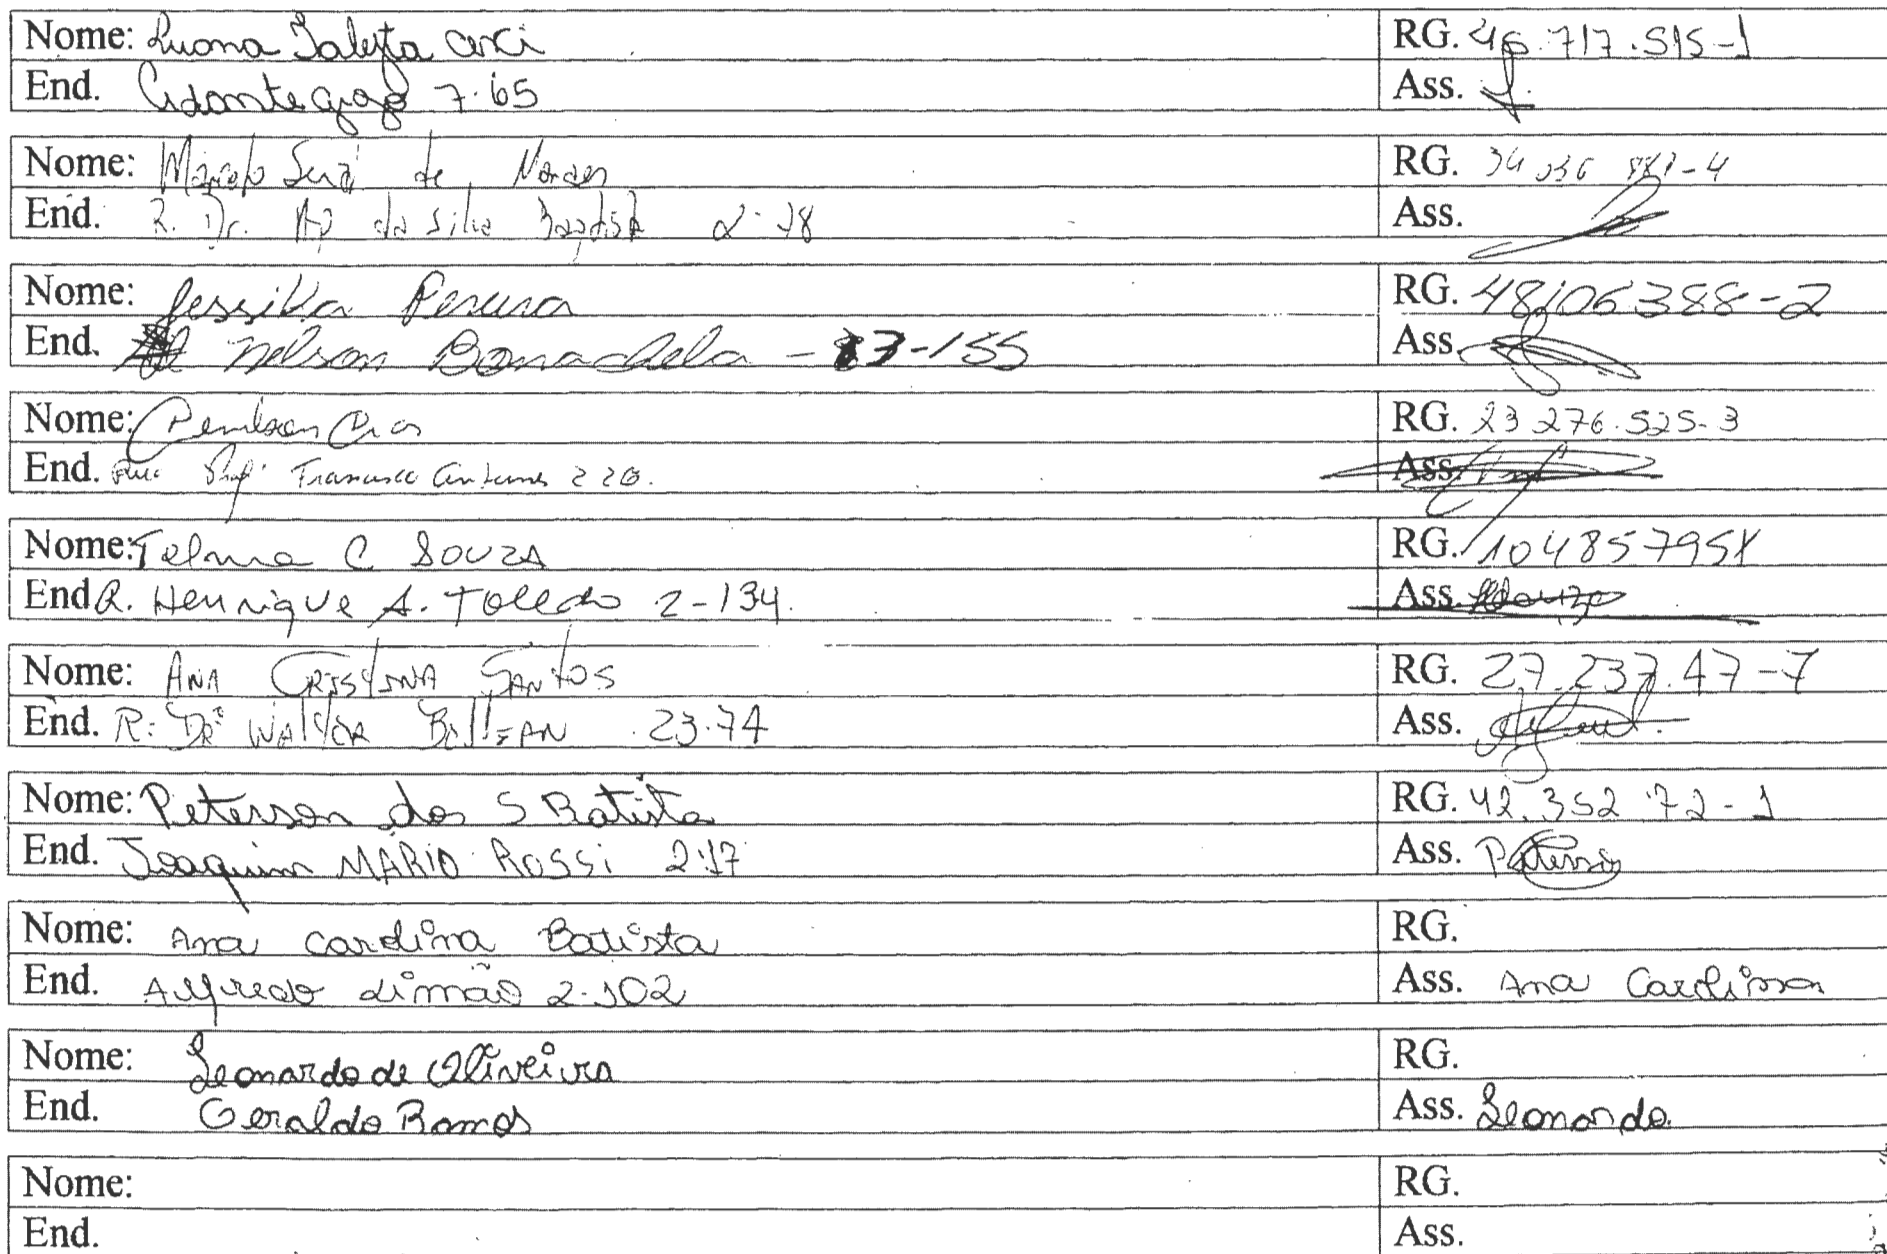 Nome: Luana Talyta RG. 46.717.515-1
End. 7-65 Ass.
Nome: Marcelo de Moraes RG. 34 036 -4
End. R. Dr. da Silva Baptista 2-78 Ass.
Nome: Jessika Pereira RG. 48106388-2
End. Nelson Bonachela - 3-155 Ass.
Nome: RG. 23 276.525-3
End. Rua Prof. Francisco Antunes 220. Ass.
Nome: Telma C SOUZA RG. 104857958
End R. Henrique A. Toledo 2-134. Ass.
Nome: ANA CRISTINA SANTOS RG. 27.237.47-7
End. R: DRº WALTER 23.74 Ass.
Nome: Peterson dos S Batista RG. 42.352 72-1
End. Joaquim MARIO ROSSi 2-17 Ass. Peterson
Nome: Ana Carolina Batista RG.
End. Alfredo Limão 2-102 Ass. Ana Carolina
Nome: Leonardo de Oliveira RG.
End. Geraldo Ramos Ass. Leonardo.
Nome: RG.
End. Ass.